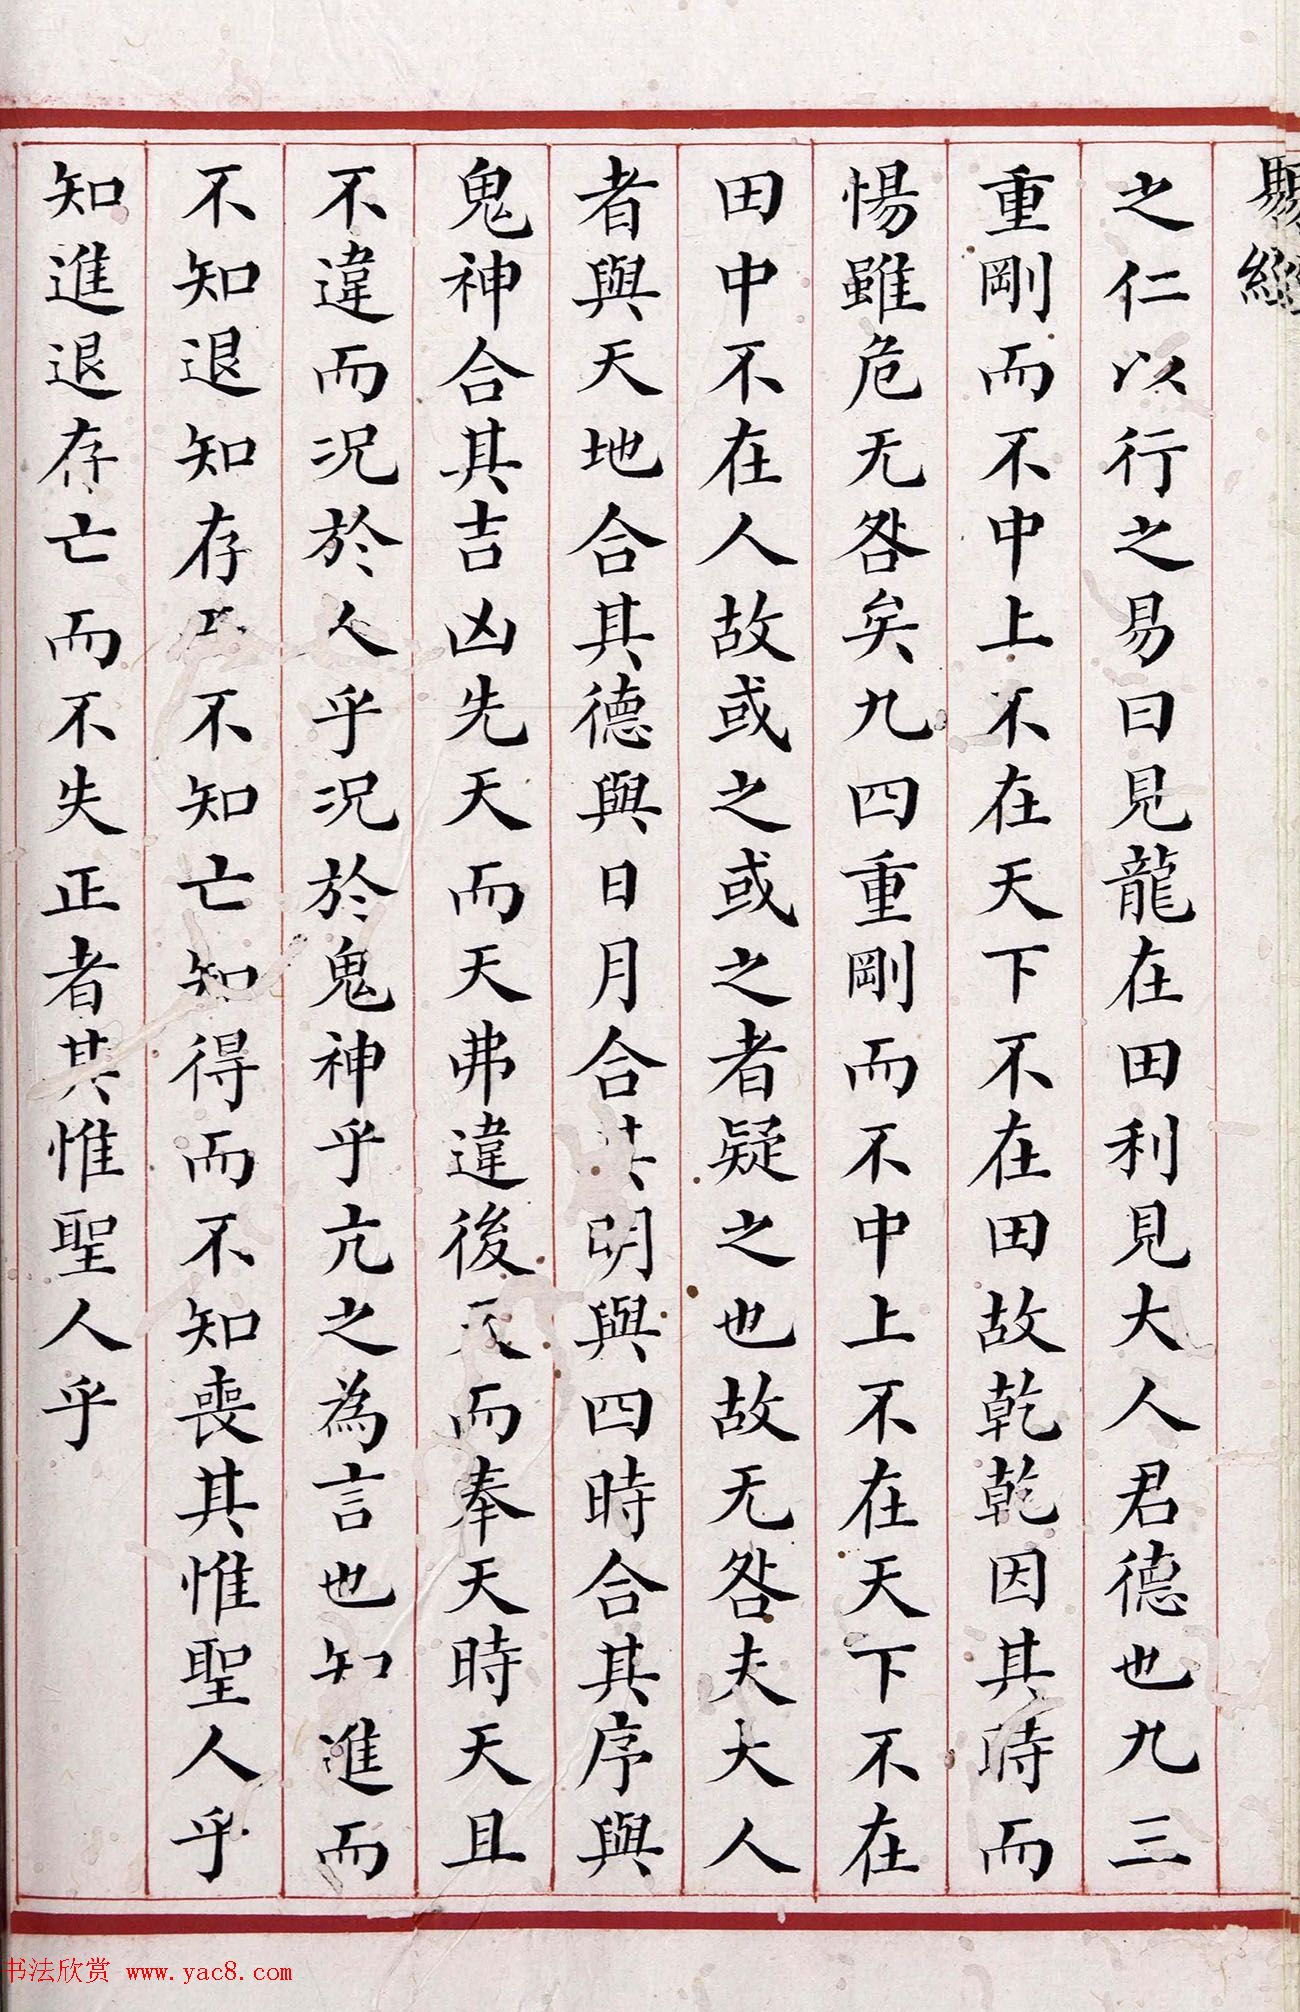 之仁以行之易曰見龍在田利見大人君德也九三
重剛而不中上不在天下不在田故乾乾因其時而
惕雖危无咎矣九四重剛而不中上不在天下不在
田中不在人故或之或之者疑之也故无咎夫大人
者與天地合其德與日月合其明與四時合其序與
鬼神合其吉凶先天而天弗違後天而奉天時天且
不違而况於人乎况於鬼神乎亢之為言也知進而
不知退知存而不知亡知得而不知喪其惟聖人乎
知進退存亡而不失正者其惟聖人乎
书法欣赏 www.yac8.com